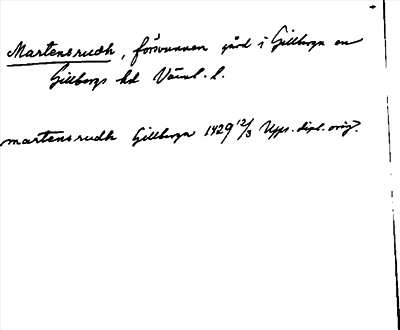 Martensrudh, försvunnen gård i Gillberga sn
Gillbergs hd Värml. l.
martensrudh Gillberga 1429 12/3 Upps. dipl. orig.